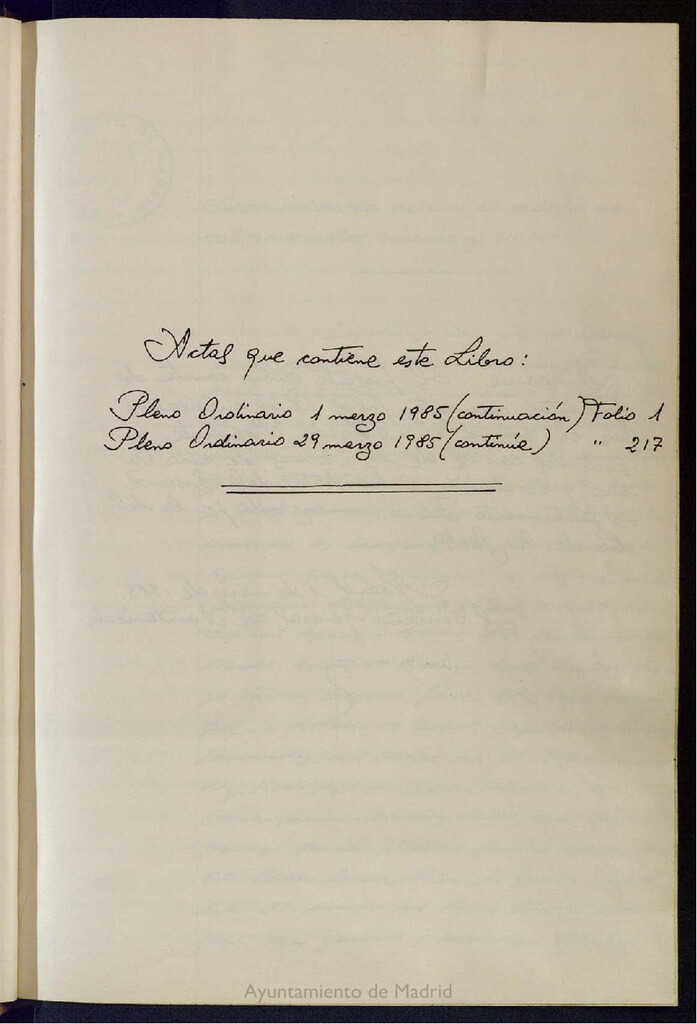 Actas que contiene este Libro:
Pleno Ordinario 1 marzo 1985 (continuación) Folio 1
Pleno Ordinario 29 marzo 1985 (continúe) " 217
Ayuntamiento de Madrid